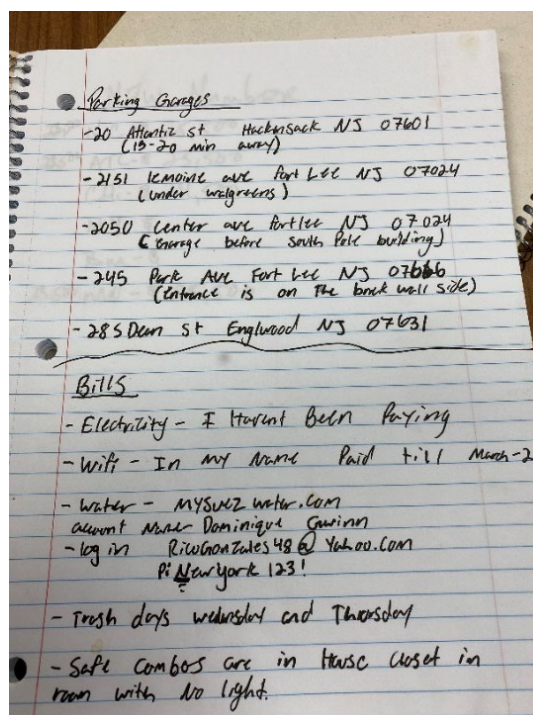 Parking Garages
-20 Atlantic st Hackensack NJ 07601
(15-20 min away)
-2151 lemoine ave Fort Lee NJ 07024
(under walgreens)
-2050 Center ave fort lee NJ 07024
(Garage before South Pole building)
-245 Park Ave Fort Lee NJ 07666
(Entrance is on The brick wall side)
-28 S Dean st Englwood NJ 07631
Bills
- Electricity - I Havent Been Paying
- Wifi - In my Name Paid till March-2
- Water - MYSuez water.com
account Name Dominique Gwinn
- log in RicoGonzales48@Yahoo.com
Pi Newyork 123!
- Trash days wednesday and Thursday
- Safe combos are in House closet in
room with No light.